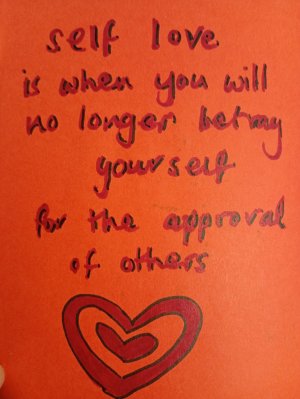 self love
is when you will
no longer betray
yourself
for the approval
of others